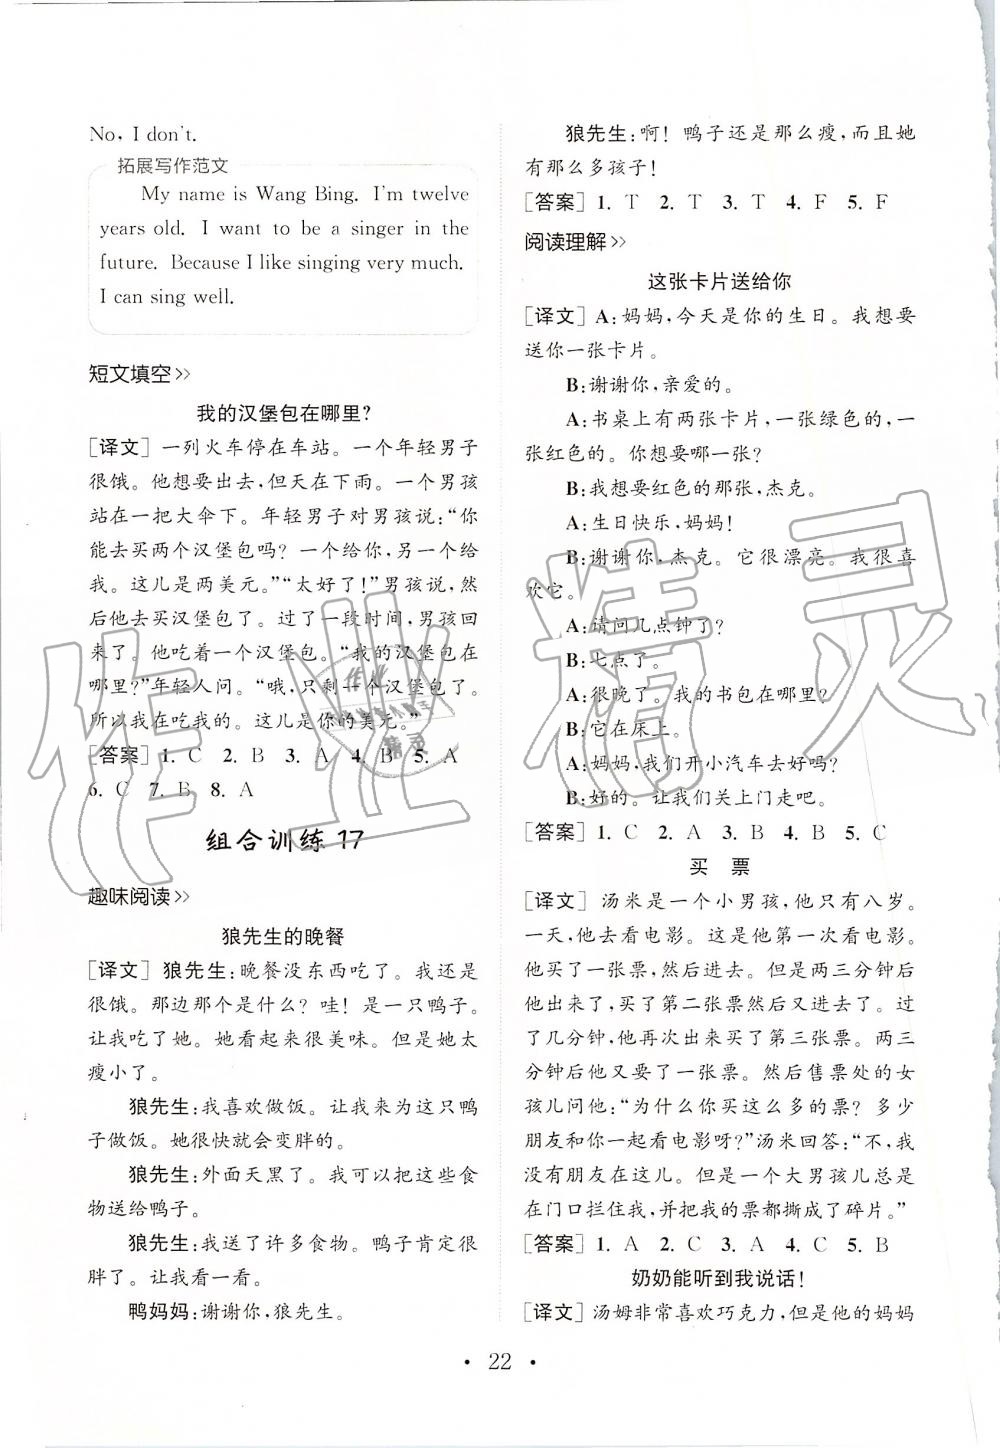 No, I don't.
拓展写作范文
My name is Wang Bing. I'm twelve
years old. I want to be a singer in the
future. Because I like singing very much.
I can sing well.
短文填空>>
我的汉堡包在哪里?
[译文] 一列火车停在车站。一个年轻男子
很饿。他想要出去,但天在下雨。一个男孩
站在一把大伞下。年轻男子对男孩说:“你
能去买两个汉堡包吗? 一个给你,另一个给
我。这儿是两美元。”“太好了!”男孩说,然
后他去买汉堡包了。过了一段时间,男孩回
来了。他吃着一个汉堡包。“我的汉堡包在
哪里?”年轻人问。“哦,只剩一个汉堡包了。
所以我在吃我的。这儿是你的美元。”
[答案] 1. C 2. B 3. A 4. B 5. A
6. C 7. B 8. A
组合训练 17
趣味阅读>>
狼先生的晚餐
[译文] 狼先生:晚餐没东西吃了。我还是
很饿。那边那个是什么? 哇! 是一只鸭子。
让我吃了她。她看起来很美味。但是她太
瘦小了。
狼先生:我喜欢做饭。让我来为这只鸭
子做饭。她很快就会变胖的。
狼先生:外面天黑了。我可以把这些食
物送给鸭子。
狼先生:我送了许多食物。鸭子肯定很
胖了。让我看一看。
鸭妈妈:谢谢你,狼先生。
狼先生:啊! 鸭子还是那么瘦,而且她
有那么多孩子!
[答案] 1. T 2. T 3. T 4. F 5. F
阅读理解>>
这张卡片送给你
[译文] A:妈妈,今天是你的生日。我想要
送你一张卡片。
B:谢谢你,亲爱的。
A:书桌上有两张卡片,一张绿色的,一
张红色的。你想要哪一张?
B:我想要红色的那张,杰克。
A:生日快乐,妈妈!
B:谢谢你,杰克。它很漂亮。我很喜
欢它。
A:请问几点钟了?
B:七点了。
A:很晚了。我的书包在哪里?
B:它在床上。
A:妈妈,我们开小汽车去好吗?
B:好的。让我们关上门走吧。
[答案] 1. C 2. A 3. B 4. B 5. C
买 票
[译文] 汤米是一个小男孩,他只有八岁。
一天,他去看电影。这是他第一次看电影。
他买了一张票,然后进去。但是两三分钟后
他出来了,买了第二张票然后又进去了。过
了几分钟,他再次出来买了第三张票。两三
分钟后他又买了一张票。然后售票处的女
孩儿问他:“为什么你买这么多的票? 多少
朋友和你一起看电影呀?”汤米回答:“不,我
没有朋友在这儿。但是一个大男孩儿总是
在门口拦住我,并把我的票都撕成了碎片。”
[答案] 1. A 2. C 3. A 4. C 5. B
奶奶能听到我说话!
[译文] 汤姆非常喜欢巧克力,但是他的妈妈
• 22 •
作业精灵